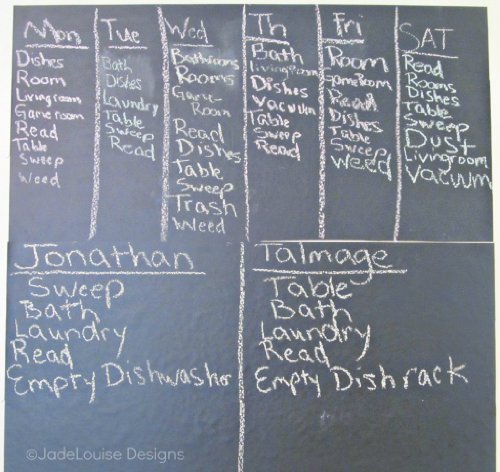 Mon
Dishes
Room
Livingroom
Gameroom
Read
Table
Sweep
Weed
Tue
Bath
Dishes
Laundry
Table
Sweep
Read
Wed
Bathrooms
Rooms
Game
Room
Read
Dishes
Table
Sweep
Trash
Weed
Th
Bath
Livingroom
Dishes
Vacuum
Table
Sweep
Read
Fri
Room
Gameroom
Read
Dishes
Table
Sweep
Weed
SAT
Read
Rooms
Dishes
Table
Sweep
Dust
Livingroom
Vacuum
Jonathan
Sweep
Bath
Laundry
Read
Empty Dishwasher
Talmage
Table
Bath
Laundry
Read
Empty Dishrack
©JadeLouise Designs